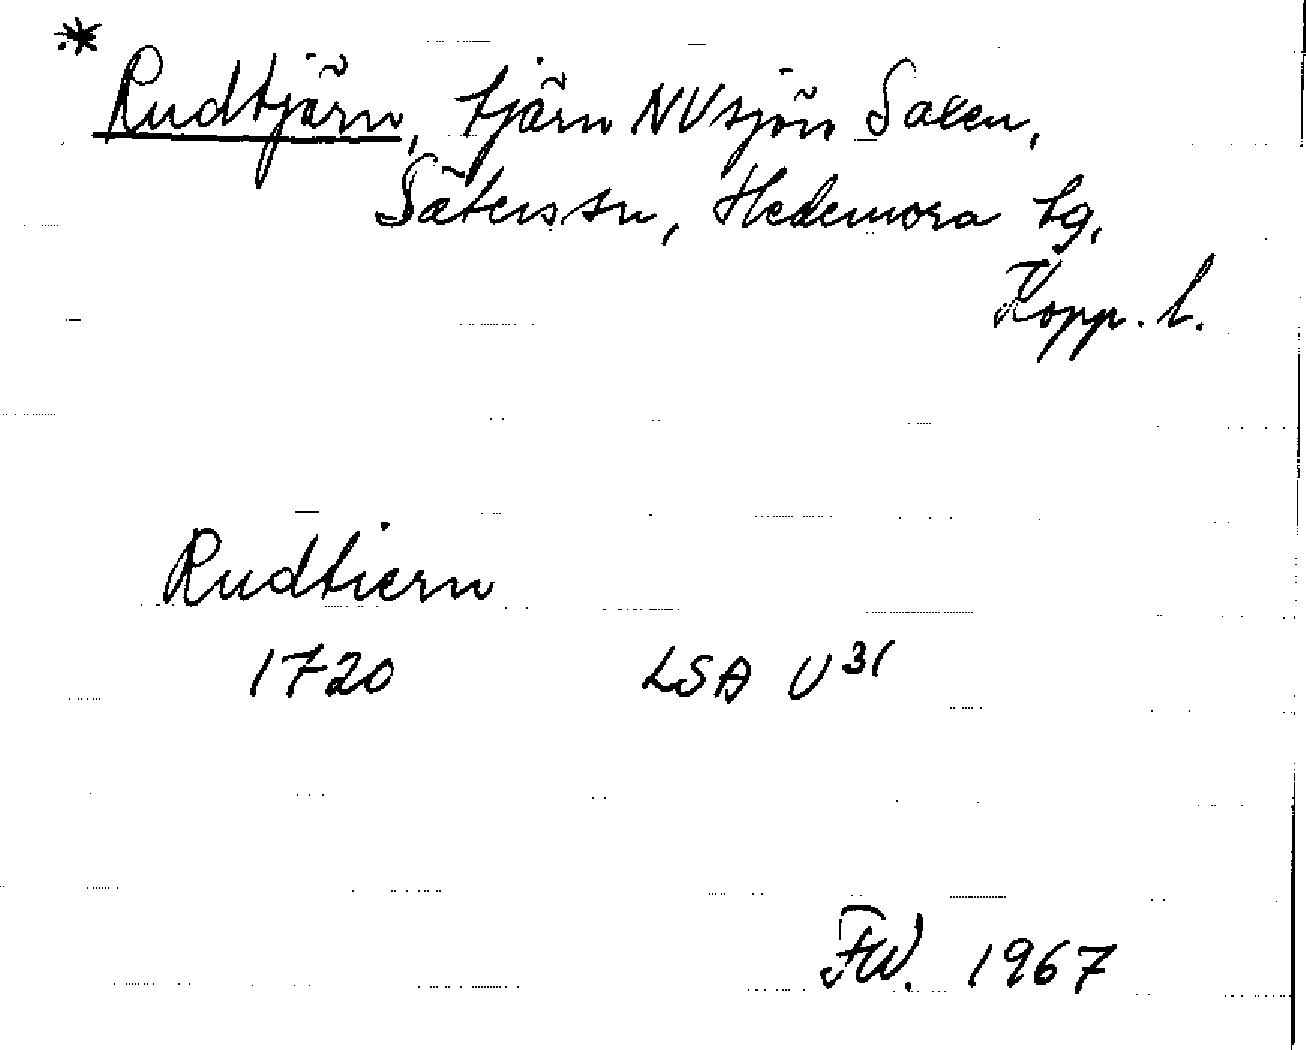 * Rudtjärn, tjärn NV sjön Salen,
Säters sn, Hedemora tg,
Kopp. l.
Rudtiern
1720 LSA U 31
FW. 1967